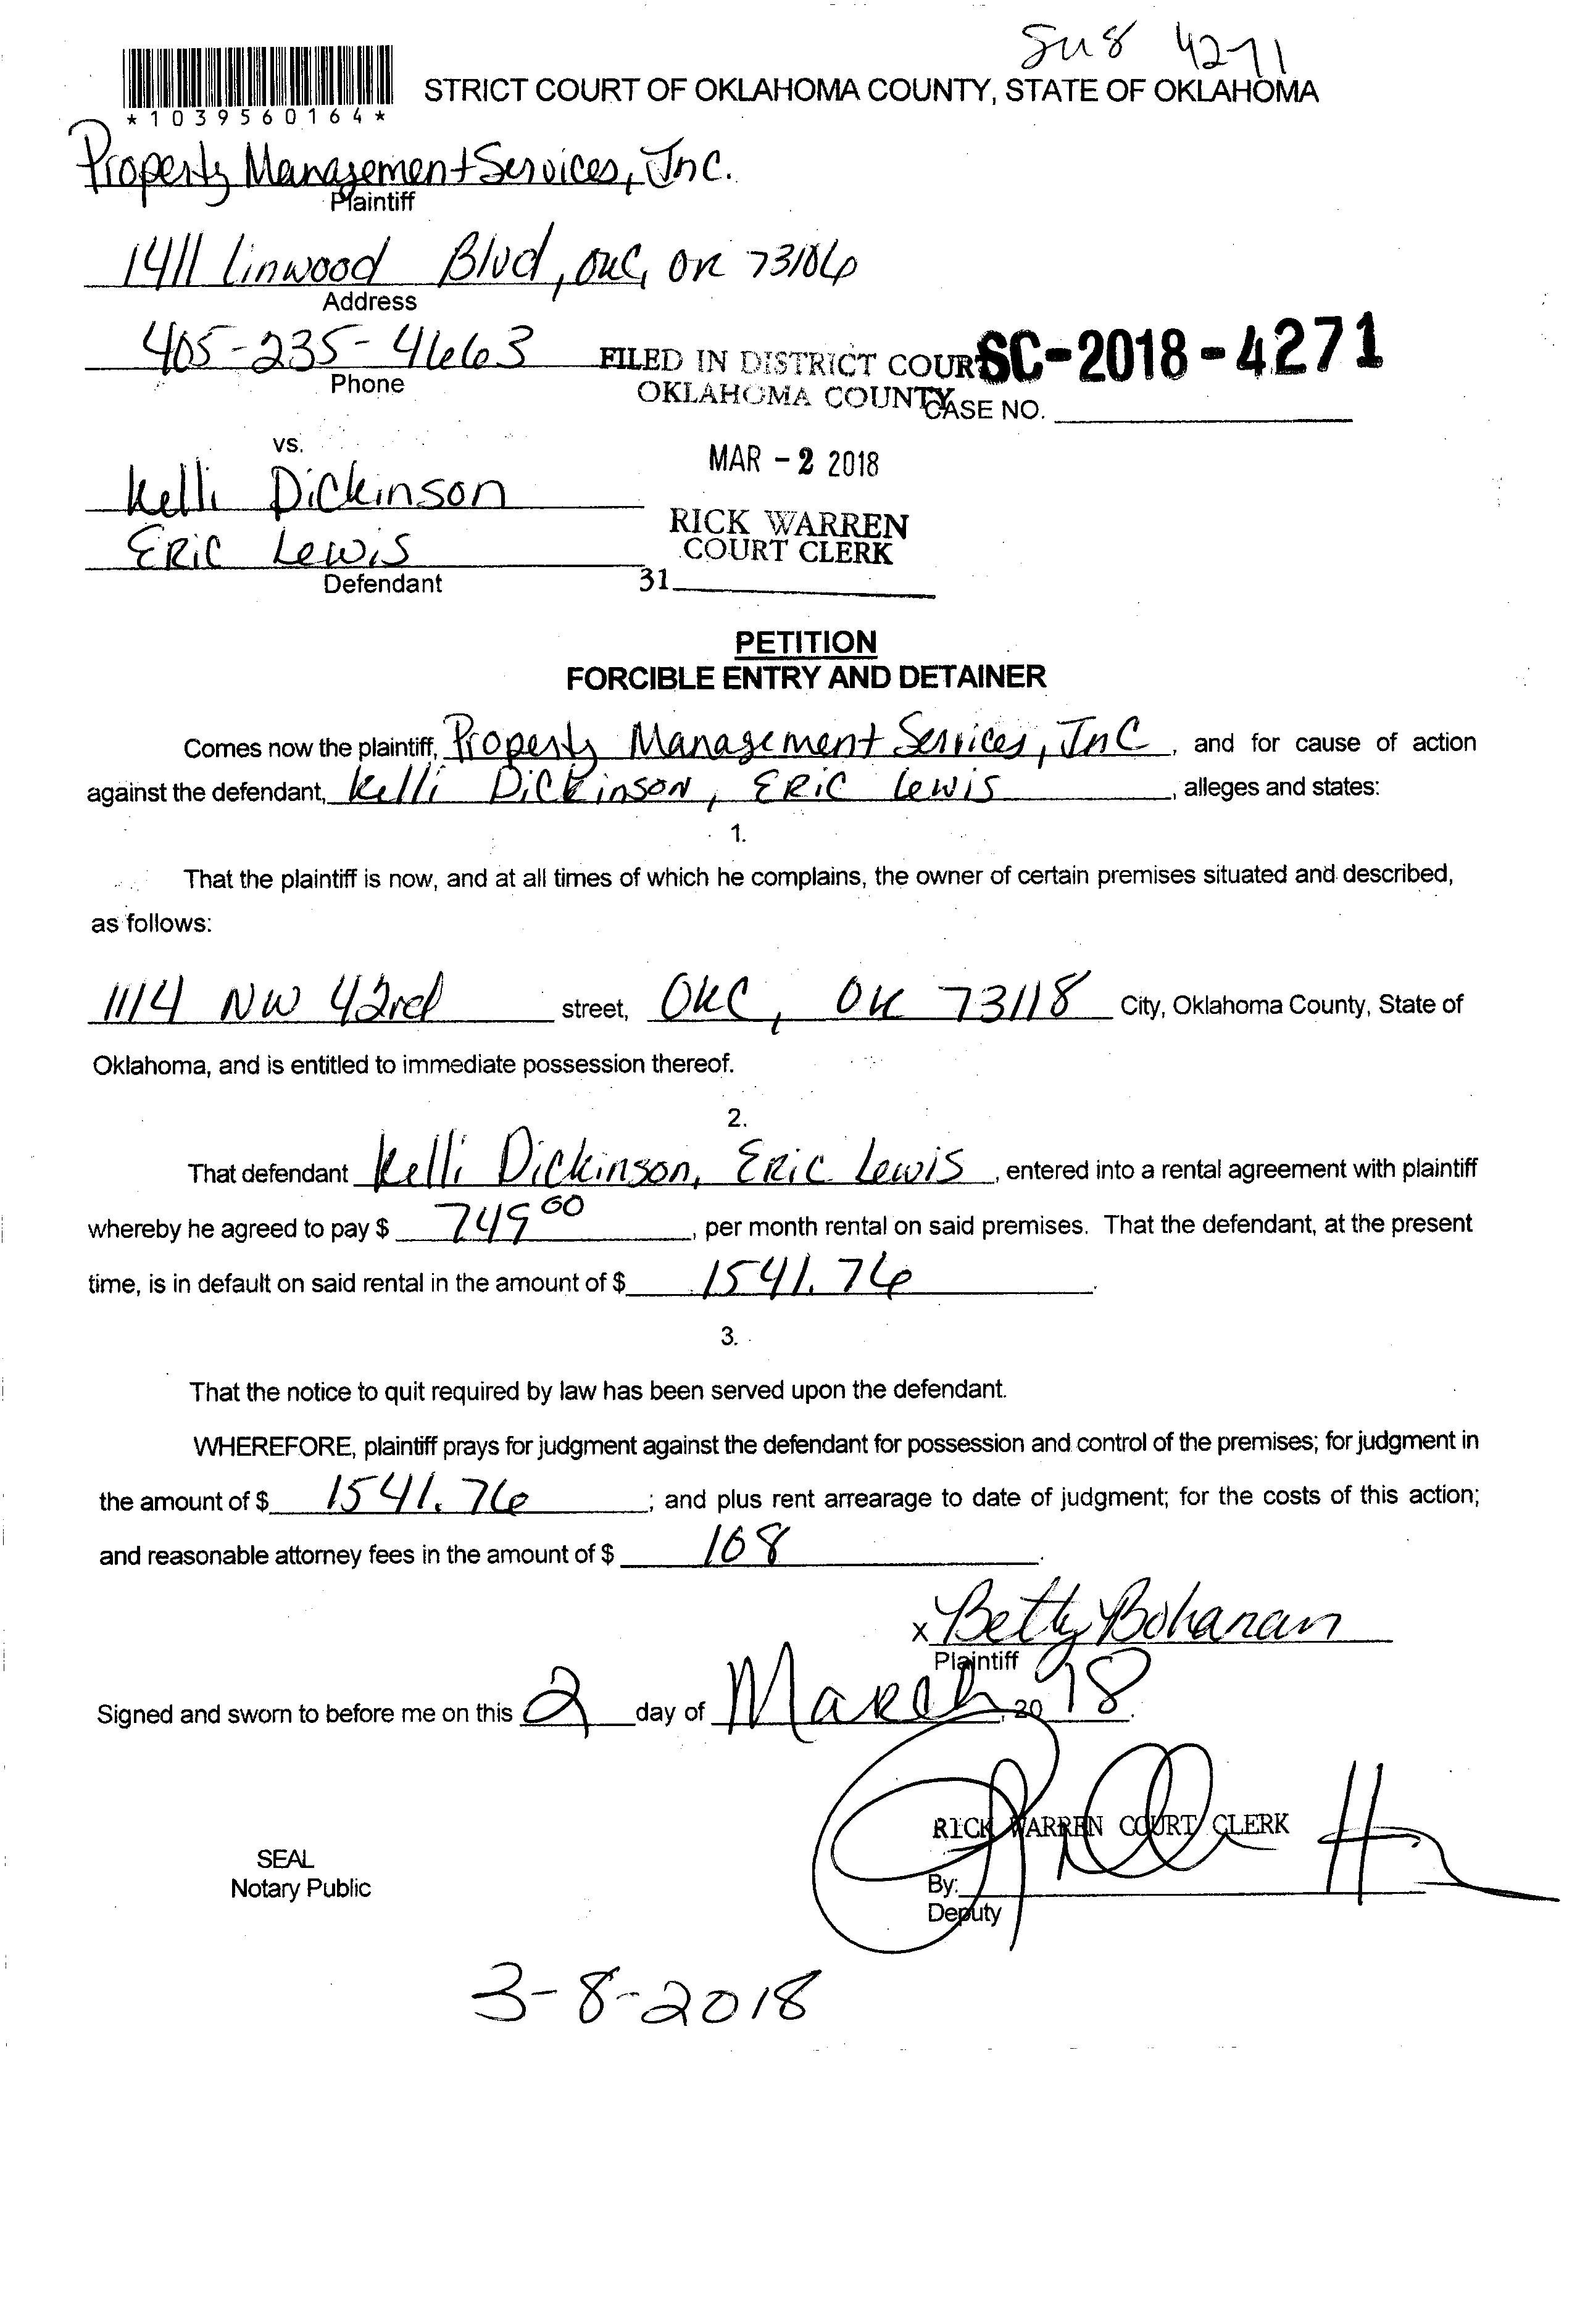 Su 8 4271
STRICT COURT OF OKLAHOMA COUNTY, STATE OF OKLAHOMA
*1039560164*
Property Management Services, Inc.
Plaintiff
1411 Linwood Blvd, OKC, OK 73106
Address
405-235-4663
Phone
FILED IN DISTRICT COUR
OKLAHOMA COUNTY
SC-2018-4271
CASE NO.
vs.
MAR - 2 2018
Kelli Dickinson
RICK WARREN
COURT CLERK
Eric Lewis
Defendant
31
PETITION
FORCIBLE ENTRY AND DETAINER
Comes now the plaintiff, Property Management Services, Inc, and for cause of action
against the defendant, Kelli Dickinson, Eric Lewis, alleges and states:
1.
That the plaintiff is now, and at all times of which he complains, the owner of certain premises situated and described,
as follows:
1114 NW 42rd street, OKC, OK 73118 City, Oklahoma County, State of
Oklahoma, and is entitled to immediate possession thereof.
2.
That defendant Kelli Dickinson, Eric Lewis, entered into a rental agreement with plaintiff
whereby he agreed to pay $ 749 00, per month rental on said premises. That the defendant, at the present
time, is in default on said rental in the amount of $ 1541.76.
3.
That the notice to quit required by law has been served upon the defendant.
WHEREFORE, plaintiff prays for judgment against the defendant for possession and control of the premises; for judgment in
the amount of $ 1541.76; and plus rent arrearage to date of judgment; for the costs of this action;
and reasonable attorney fees in the amount of $ 108.
x Betty Bohanan
Plaintiff
Signed and sworn to before me on this 2 day of March, 20 18.
RICK WARREN COURT CLERK
SEAL
Notary Public
By:
Deputy
3-8-2018